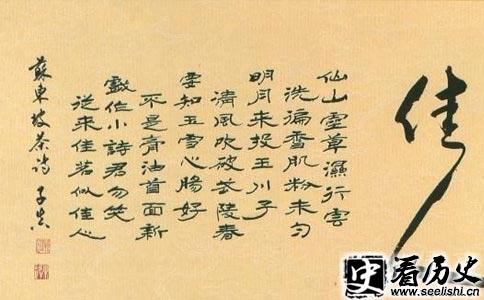 佳
仙山靈草濕行雲
洗遍香肌粉未勻
明月來投玉川子
清風吹破武陵春
要知玉雪心腸好
不是膏油首面新
戲作小詩君勿笑
從來佳茗似佳人
蘇東坡茶詩 子
史 看历史
www.seelishi.cn